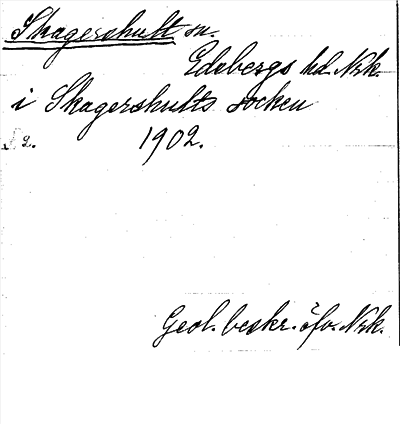 Skagershult sn.
Edsbergs hd. Nrk.
i Skagershults socken
s. 2. 1902.
Geol. beskr. öfv. Nrk.